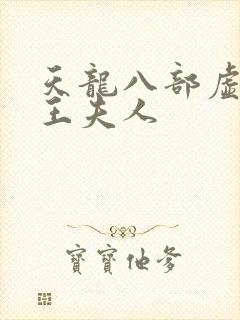 天龍八部虛
王夫人
寶寶他爹